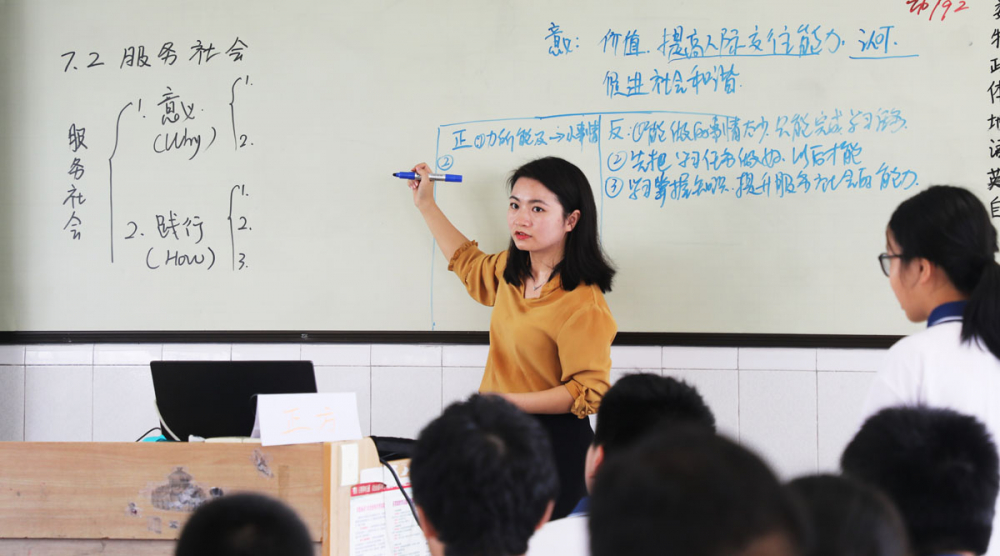 7.2 服务社会
服务社会
1. 意义.
(Why)
1.
2.
2. 践行
(How)
1.
2.
3.
意义: 价值. 提高人际交往能力. 认可.
促进社会和谐.
正 ①力所能及 小事情
②
反: ①能做的事情太少. 只能完成学习任务.
②先把学习任务做好. 以后才能
③学习掌握知识. 提升服务社会的能力.